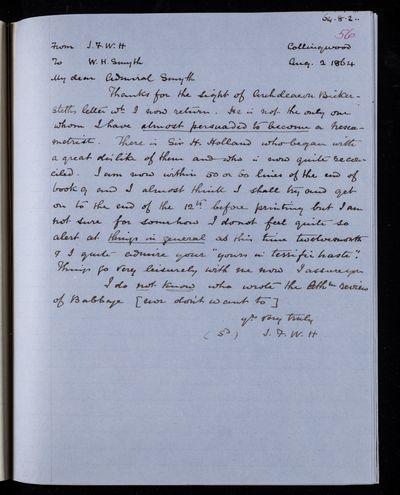 64.8.2
56
From J.F.W.H Collingwood
To W.H. Smyth Aug. 2 1864
My dear Admiral Smyth
Thanks for the sight of Archdeacon Bicker-
steths letter wh I now return. He is not the only one
whom I have almost persuaded to become a hexa-
metrist. There is Sir H. Holland who began with
a great dislike of them and who is now quite recon-
ciled. I am now within 50 or 60 lines of the end of
book 9 and I almost think I shall try and get
on to the end of the 12th before printing but I am
not sure for somehow I do not feel quite so
alert at things in general as this time twelvemonth
& I quite admire your "yours in terrific haste".
Things go very leisurely with me now I assure you
I do not know who wrote the Athm review
of Babbage [nor don't want to]
yrs very truly
(Sd) J.F.W.H